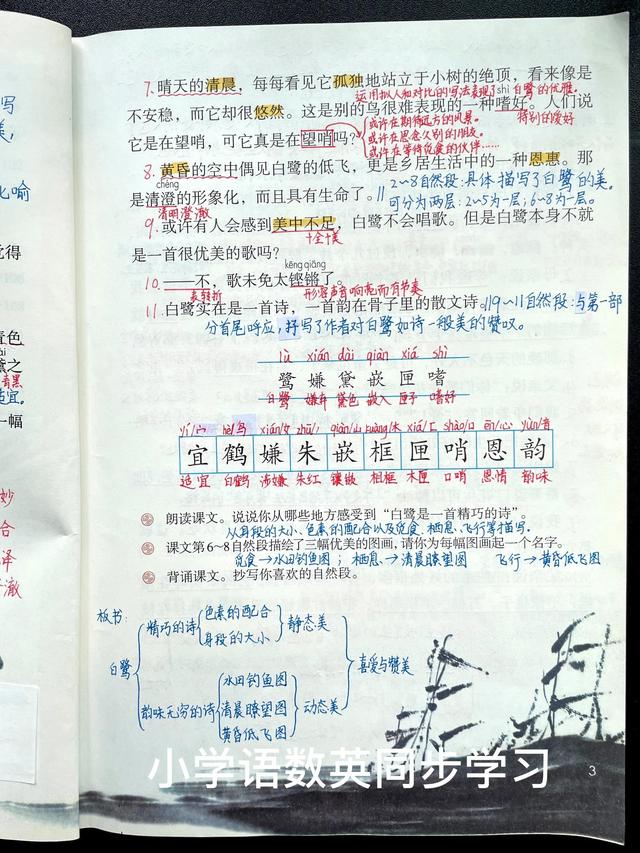 写
美，
化喻
觉得
青色
黛之
青黑
适宜。
一幅
妙
合
泽
干澈
7.晴天的清晨，每每看见它孤独地站立于小树的绝顶，看来像是
运用拟人和对比的写法表现了白鹭的优雅。
shì
不安稳，而它却很悠然。这是别的鸟很难表现的一种嗜好。人们说
特别的爱好
或许在期待远方的风景。
它是在望哨，可它真是在望哨吗？
或许在思念久别的朋友。
或许在等待觅食的伙伴……
8.黄昏的空中偶见白鹭的低飞，更是乡居生活中的一种恩惠。那
chéng
是清澄的形象化，而且具有生命了。
‖2~8自然段：具体描写了白鹭的美。
清明澄澈
可分为两层：2~5为一层；6~8为一层。
9.或许有人会感到美中不足，白鹭不会唱歌。但是白鹭本身不就
十全十美
是一首很优美的歌吗？
kēng qiāng
10.——不，歌未免太铿锵了。
表转折
形容声音响亮而有节奏
11.白鹭实在是一首诗，一首韵在骨子里的散文诗。
‖9~11自然段：与第一部
分首尾呼应，抒写了作者对白鹭如诗一般美的赞叹。
lù xián dài qiàn xiá shì
鹭 嫌 黛 嵌 匣 嗜
白鹭 嫌弃 黛色 嵌入 匣子 嗜好
yí/宀 hè/鸟 xián/女 zhū/ qiàn/山 kuàng/木 xiá/匚 shào/口 ēn/心 yùn/音
宜 鹤 嫌 朱 嵌 框 匣 哨 恩 韵
适宜 白鹤 涉嫌 朱红 镶嵌 相框 木匣 口哨 恩情 韵味
朗读课文。说说你从哪些地方感受到“白鹭是一首精巧的诗”。
从身段的大小、色素的配合以及觅食、栖息、飞行等描写。
课文第6~8自然段描绘了三幅优美的图画，请你为每幅图画起一个名字。
觅食→水田钓鱼图；栖息→清晨瞭望图 飞行→黄昏低飞图
背诵课文。抄写你喜欢的自然段。
板书：
白鹭
精巧的诗
色素的配合
身段的大小
静态美
韵味无穷的诗
水田钓鱼图
清晨瞭望图
黄昏低飞图
动态美
喜爱与赞美
小学语数英同步学习
3